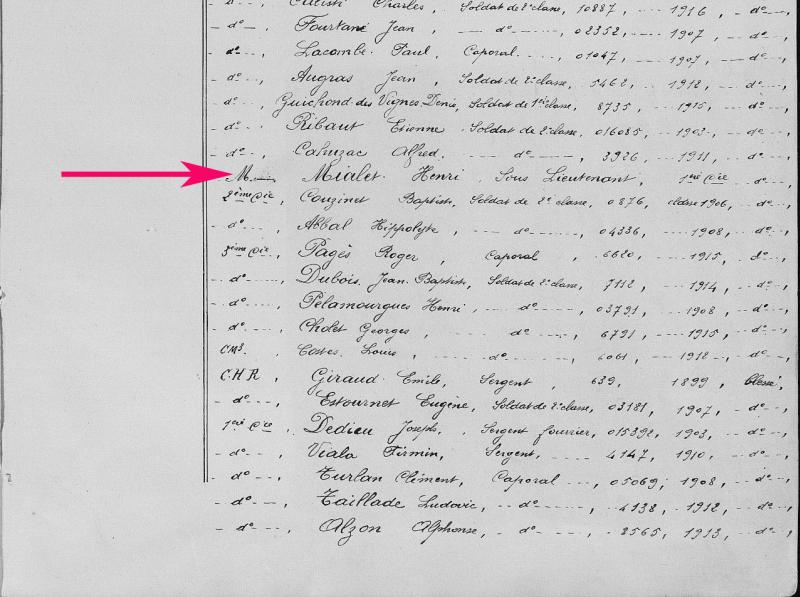 Charles, Soldat de 2e classe, 10887, --- 1916, - do ---,
- do ---, Fourtané Jean, --- do ----, 02352, --- 1907, - do ---,
do ---, Lacombe Paul, Caporal ----, 01047, --- 1907, - do ---,
- do ---, Augras Jean, Soldat de 2e classe, 5462, --- 1912, - do ---,
- do ---, Guichond des Vignes, Denis, Soldat de 1ère classe, 8735, --- 1915, - do ---,
- do ---, Ribaut Etienne, Soldat de 2e classe, 016085, --- 1903, --- do ---,
- do ---, Cahuzac Alfred, --- do ----, 3926, --- 1911, - do ---,
M. ---, Mialet Henri, Sous Lieutenant, 1ère Cie --- do ---,
2ème Cie, Couzinet Baptiste, Soldat de 2e classe, 0876, classe 1906, --- do ---,
- do ---, Abbal Hippolyte, --- do ----, 04336, --- 1908, - do ---,
3ème Cie, Pagès Roger, Caporal, 6620, --- 1915, - do ---,
- do ---, Dubois Jean Baptiste, Soldat de 2e classe, 7112, --- 1914, - do ---,
- do ---, Pélamourgues Henri, --- do ---, 03791, --- 1908, - do ---,
- do ---, Cholet Georges, --- do ----, 6791, --- 1915, - do ---,
CM3, Costes Louis, --- do ----, 6061, --- 1912, --- do ---,
C.H.R, Giraud Emile, Sergent, 639, 1899, blessé,
- do ---, Estournet Eugène, Soldat de 2e classe, 03181, --- 1907, --- do ---,
1ère Cie, Dedieu Joseph, Sergent fourrier, 015392, --- 1903, --- do ---,
- do ---, Viala Firmin, Sergent, ---- 4147, --- 1910, --- do ---,
- do ---, Turlan Clément, Caporal ---- 05069, 1908, --- do ---,
- do ---, Taillade Ludovic, --- do ---- 4138, --- 1912, --- do ---,
- do ---, Alzon Alphonse, --- do ---, 8565, --- 1913, --- do ---,